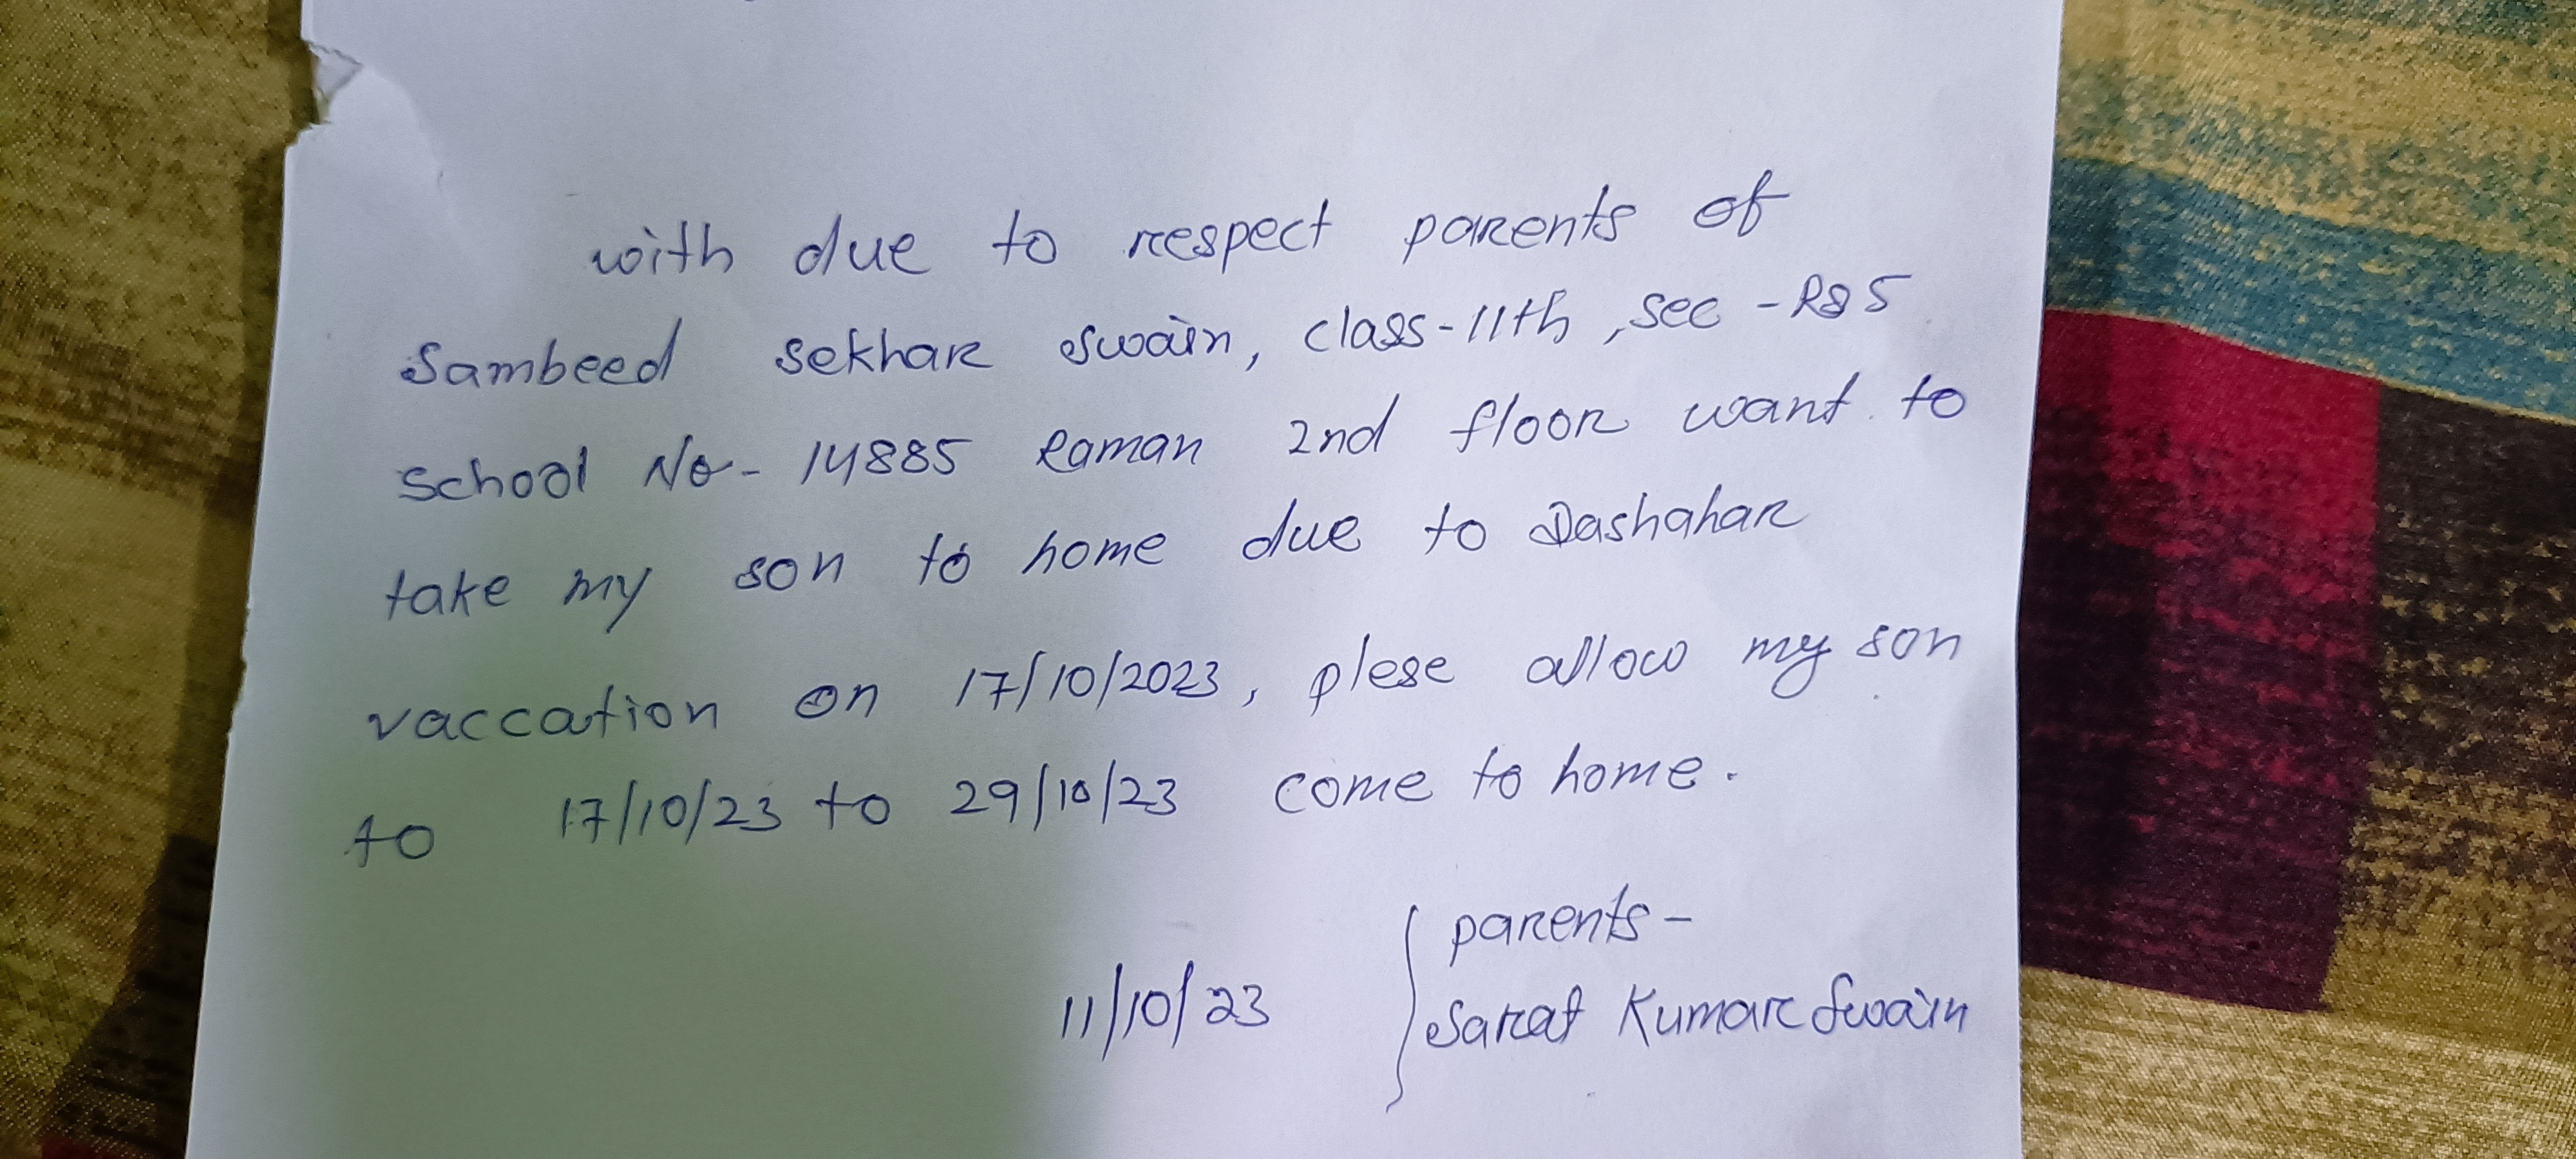 with due to respect parents of
Sambeed Sekhar Swain, class-11th, sec - R85
School No - 14885 Raman 2nd floor want to
take my son to home due to Dashahar
vaccation on 17/10/2023, plese allow my son
to 17/10/23 to 29/10/23 come to home.
parents-
11/10/23 Sarat Kumar Swain